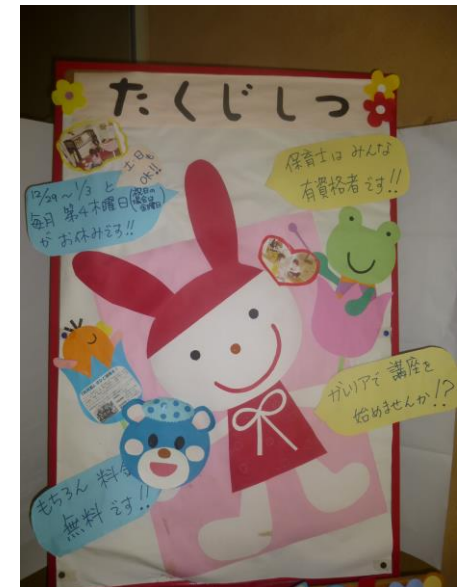 たくじしつ
土日も
OK!!
12/29～1/3 と
毎月 第4木曜日
がお休みです!!
保育士は みんな
有資格者です!!
ガレリアで 講座を
始めませんか!?
もちろん 料金
無料です!!